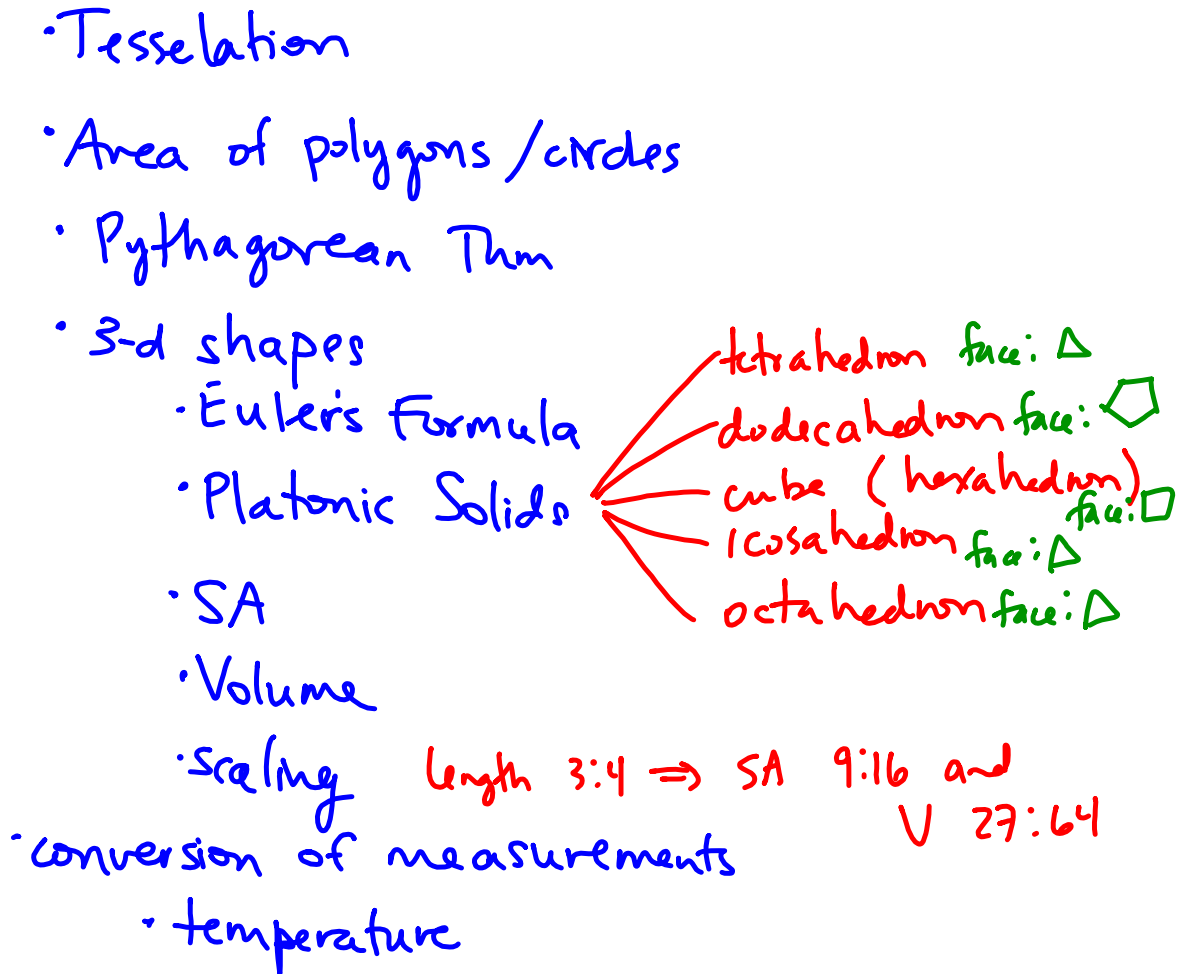 · Tesselation
· Area of polygons/circles
· Pythagorean Thm
· 3-d shapes
· Euler's Formula
· Platonic Solids
tetrahedron face:
dodecahedron face:
cube (hexahedron)
face:
icosahedron face:
octahedron face:
· SA
· Volume
· scaling length 3:4 ⇒ SA 9:16 and
V 27:64
· conversion of measurements
· temperature